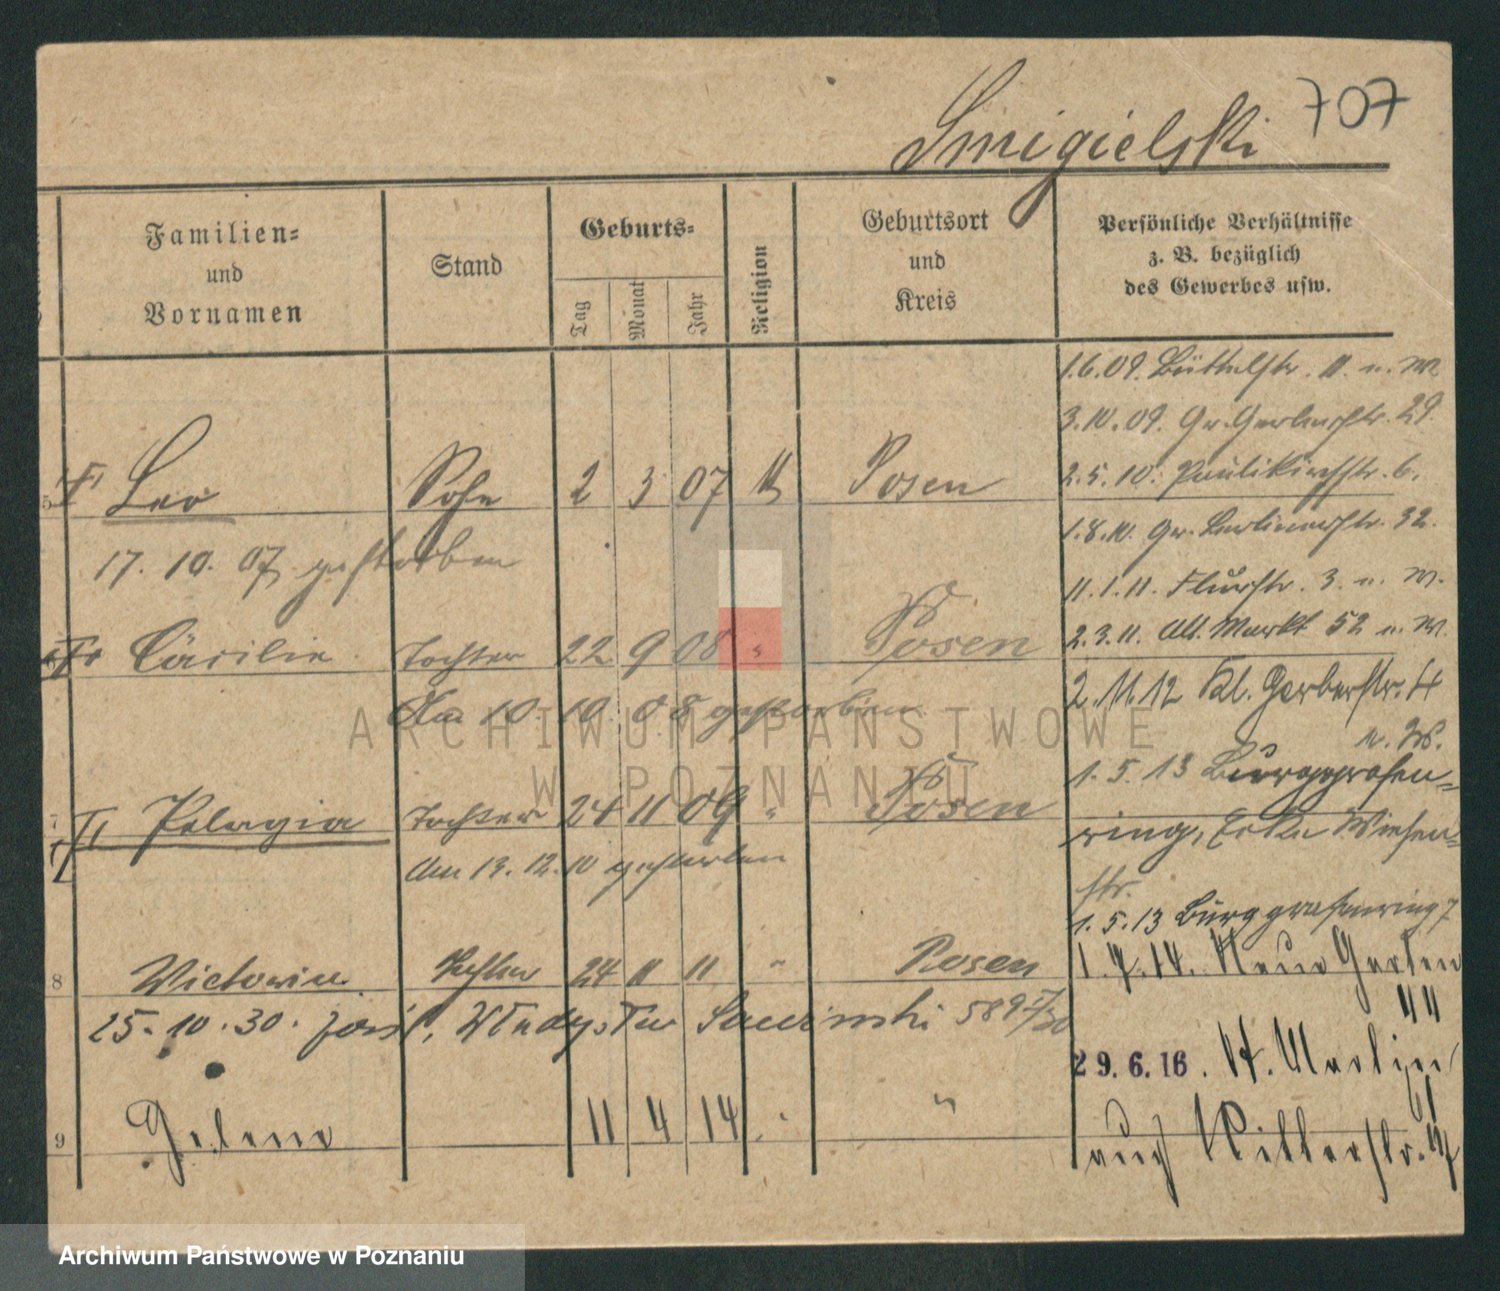 707
Smigielski
Familien=
und
Vornamen
Stand
Geburts=
Tag
Monat
Jahr
Religion
Geburtsort
und
Kreis
Persönliche Verhältnisse
z. B. bezüglich
des Gewerbes usw.
1.6.09. Büttelstr. 11. u. W.
3.10.09. Gr. Gerberstr. 29.
5 Leo Sohn 2 3 07 Posen
2.5.10. Paulikirchstr. 6.
17. 10. 07 gestorben
1.8.10. Gr. Berlinerstr. 32.
11.1.11. Flurstr. 3. u. W.
Cäcilie Tochter 22 9 08 " Posen
2.3.11. Alt. Markt 52 u. W.
Am 10. 10. 08 gestorben
2.11.12 Kl. Gerberstr. 4
u. W.
1. 5. 13 Burggrafen=
7 Pelagia Tochter 24 11 09 " Posen
ring, Ecke Wiesen=
Am 13. 12. 10 gestorben
str.
1. 5. 13 Burggrafenring 7
8 Victoria Tochter 24 11 11 " Posen
1. 7. 14. Neue Garten
25. 10. 30. Władysław 589
29. 6. 16. St. Martin
9 Helene 11 4 14 " "
auch Ritterstr.
ARCHIWUM PAŃSTWOWE
W POZNANIU
Archiwum Państwowe w Poznaniu